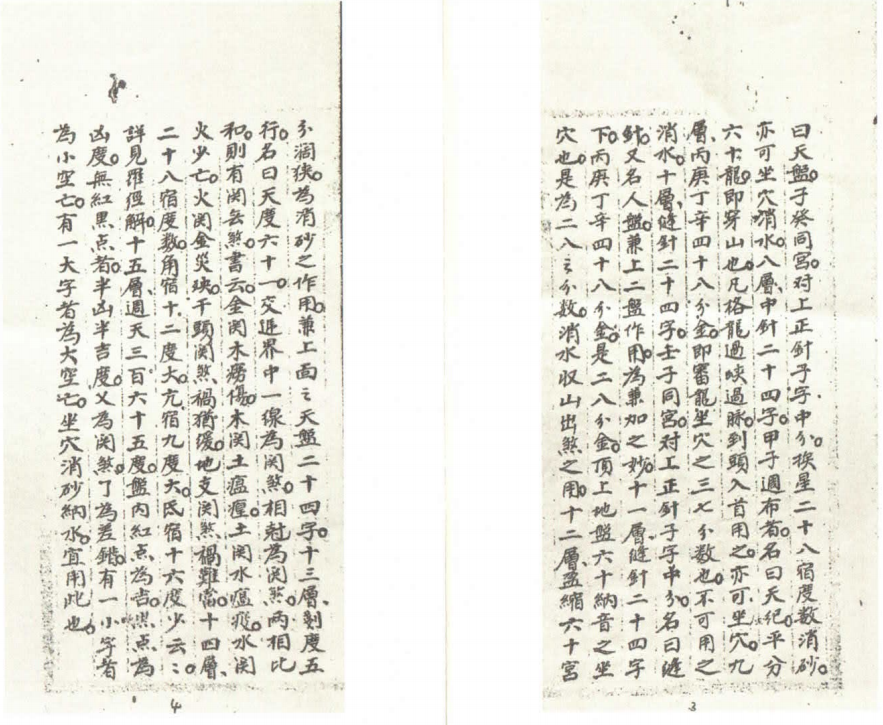 曰天盤。子癸同宮。对上正針子字中分。挨星二十八宿度數消砂。
亦可坐穴消水。八層中針二十四字。甲子週布者。名曰天紀平分
六十龍。即穿山也。凡格龍過峽過脉。到頭入首用之。亦可坐穴。九
層、丙庚丁辛四十八分金。即審龍坐穴之三七分數也。不可用之
消水。十層縫針二十四字。壬子同宮。对上正針子字中分。名曰縫
針。又名人盤。兼上二盤作用。為兼加之妙。十一層縫針二十四字
下。丙庚丁辛四十八分金。是二八分金。頂上地盤六十納音之坐
穴也。是為二八之分數。消水収山出煞之用。十二層、盈縮六十宮
3
分濶狹。為消砂之作用。兼上面之天盤二十四字。十三層、刻度五
行。名曰天度六十一。交進界中一線為関煞。相尅為関煞。兩相比
和。則有関無煞。書云。金関木癆傷。木関土瘟瘽。土関水瘟疫。水関
火少亡。火関金災殃。干頭関煞禍猶緩。地支関煞禍難當。十四層、
二十八宿度數。角宿十二度大。亢宿九度大。氐宿十六度少云云。
詳見羅經解。十五層、週天三百六十五度。盤內紅点為吉。黑点為
凶度。無紅黑点者。半凶半吉度。乂為関煞。了為差錯。有一小字者
為小空亡。有一大字者為大空亡。坐穴消砂納水。宜用此也。
4